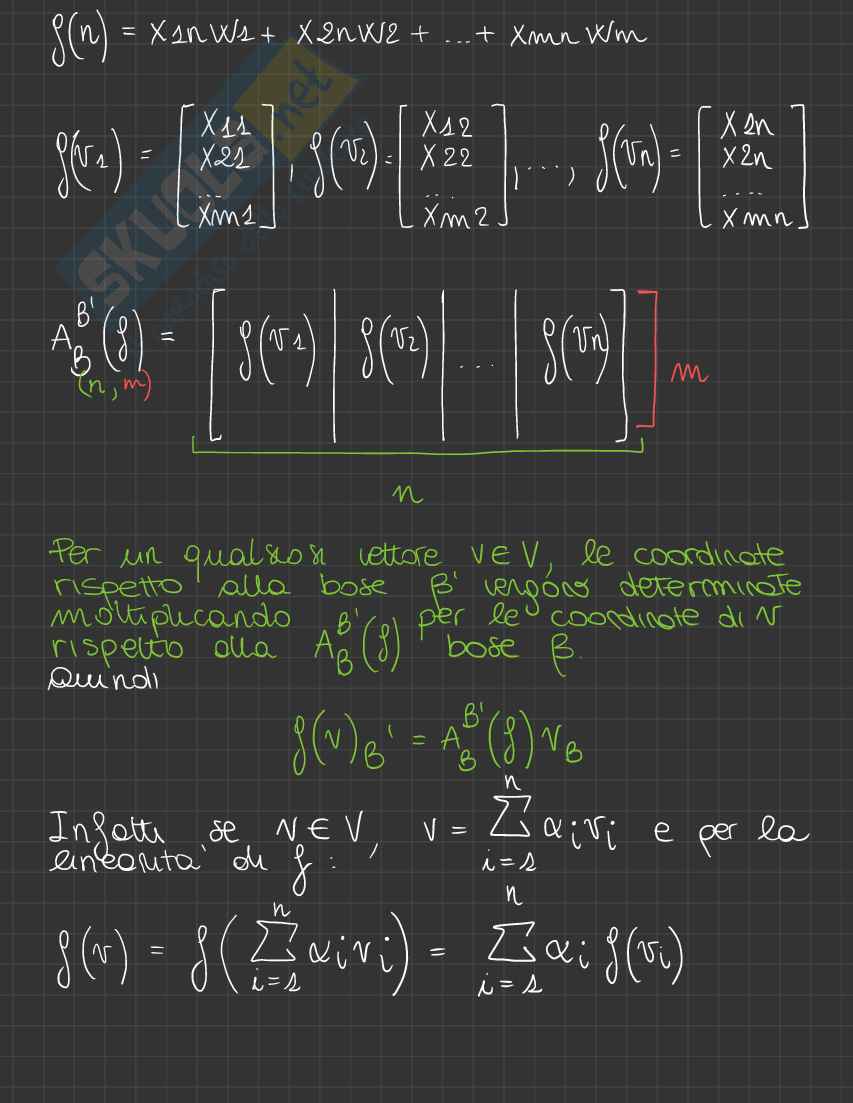 f(n) = x1n w1 + x2n w2 + ... + xmn wm
f(v1) = [x11 x21 ... xm1], f(v2) = [x12 x22 ... xm2], ..., f(vn) = [x1n x2n .... xmn]
SKUOLA.net
A_B^B'(f) = [f(v1) | f(v2) | ... | f(vn)] ] m
(n, m)
n
Per un qualsiasi vettore v ∈ V, le coordinate
rispetto alla base β' vengono determinate
moltiplicando A_B^B'(f) per le coordinate di v
rispetto alla base β.
Quindi
f(v)_B' = A_B^B'(f) v_B
Infatti se v ∈ V, v = ∑_{i=1}^{n} αi vi e per la
linearità di f:
f(v) = f(∑_{i=1}^{n} αi vi) = ∑_{i=1}^{n} αi f(vi)